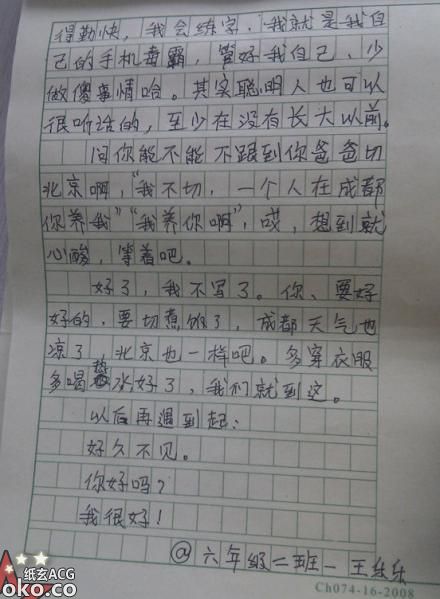 得勤快，我会练字，我就是我自
己的手机毒霸，管好我自己、少
做傻事情哈。其实聪明人也可以
很听话的，至少在没有长大以前。
问你能不能不跟到你爸爸切
北京啊，“我不切，一个人在成都
你养我”“我养你啊”，哎，想到就
心酸，等着吧。
好了，我不写了。你、要好
好的，要切煮饭了，成都天气也
凉了，北京也一样吧。多穿衣服
多喝热水好了，我们就到这。
以后再遇到起：
好久不见。
你好吗？
我很好！
@六年级二班一王乐乐
Ch074-16-2008
纸玄ACG
oko.co